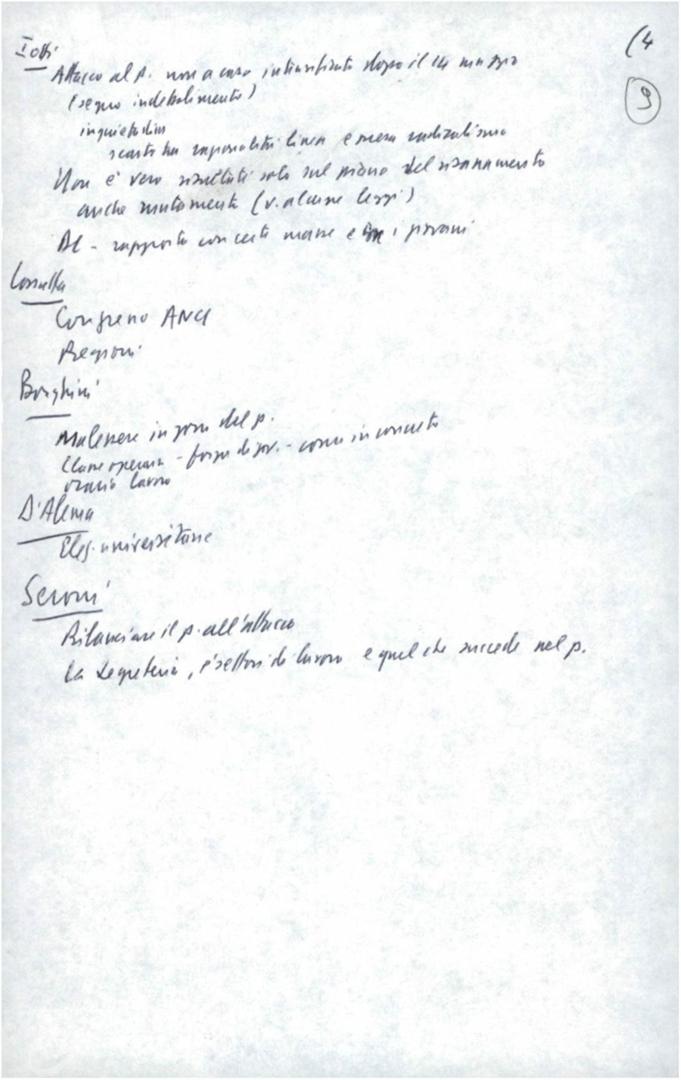 (4
9
Iotti
Attacco al p. non a caso intensificato dopo il 14 maggio
(segno indebolimento)
inquietudini
scarto tra responsabilità linea e mera radicalismo
Non è vero risultati solo sul piano del risanamento
anche mutamento (v. alcune leggi)
DC - rapporto con certe masse e i giovani
Cossutta
Congresso ANCI
Regioni
Borghini
Malessere in zone del p.
Classe operaia - forza di gov. - come in concreto
orario lavoro
D'Alema
Elez. universitarie
Seroni
Rilanciare il p. all'attacco
La Segreteria, i settori di lavoro e quel che succede nel p.